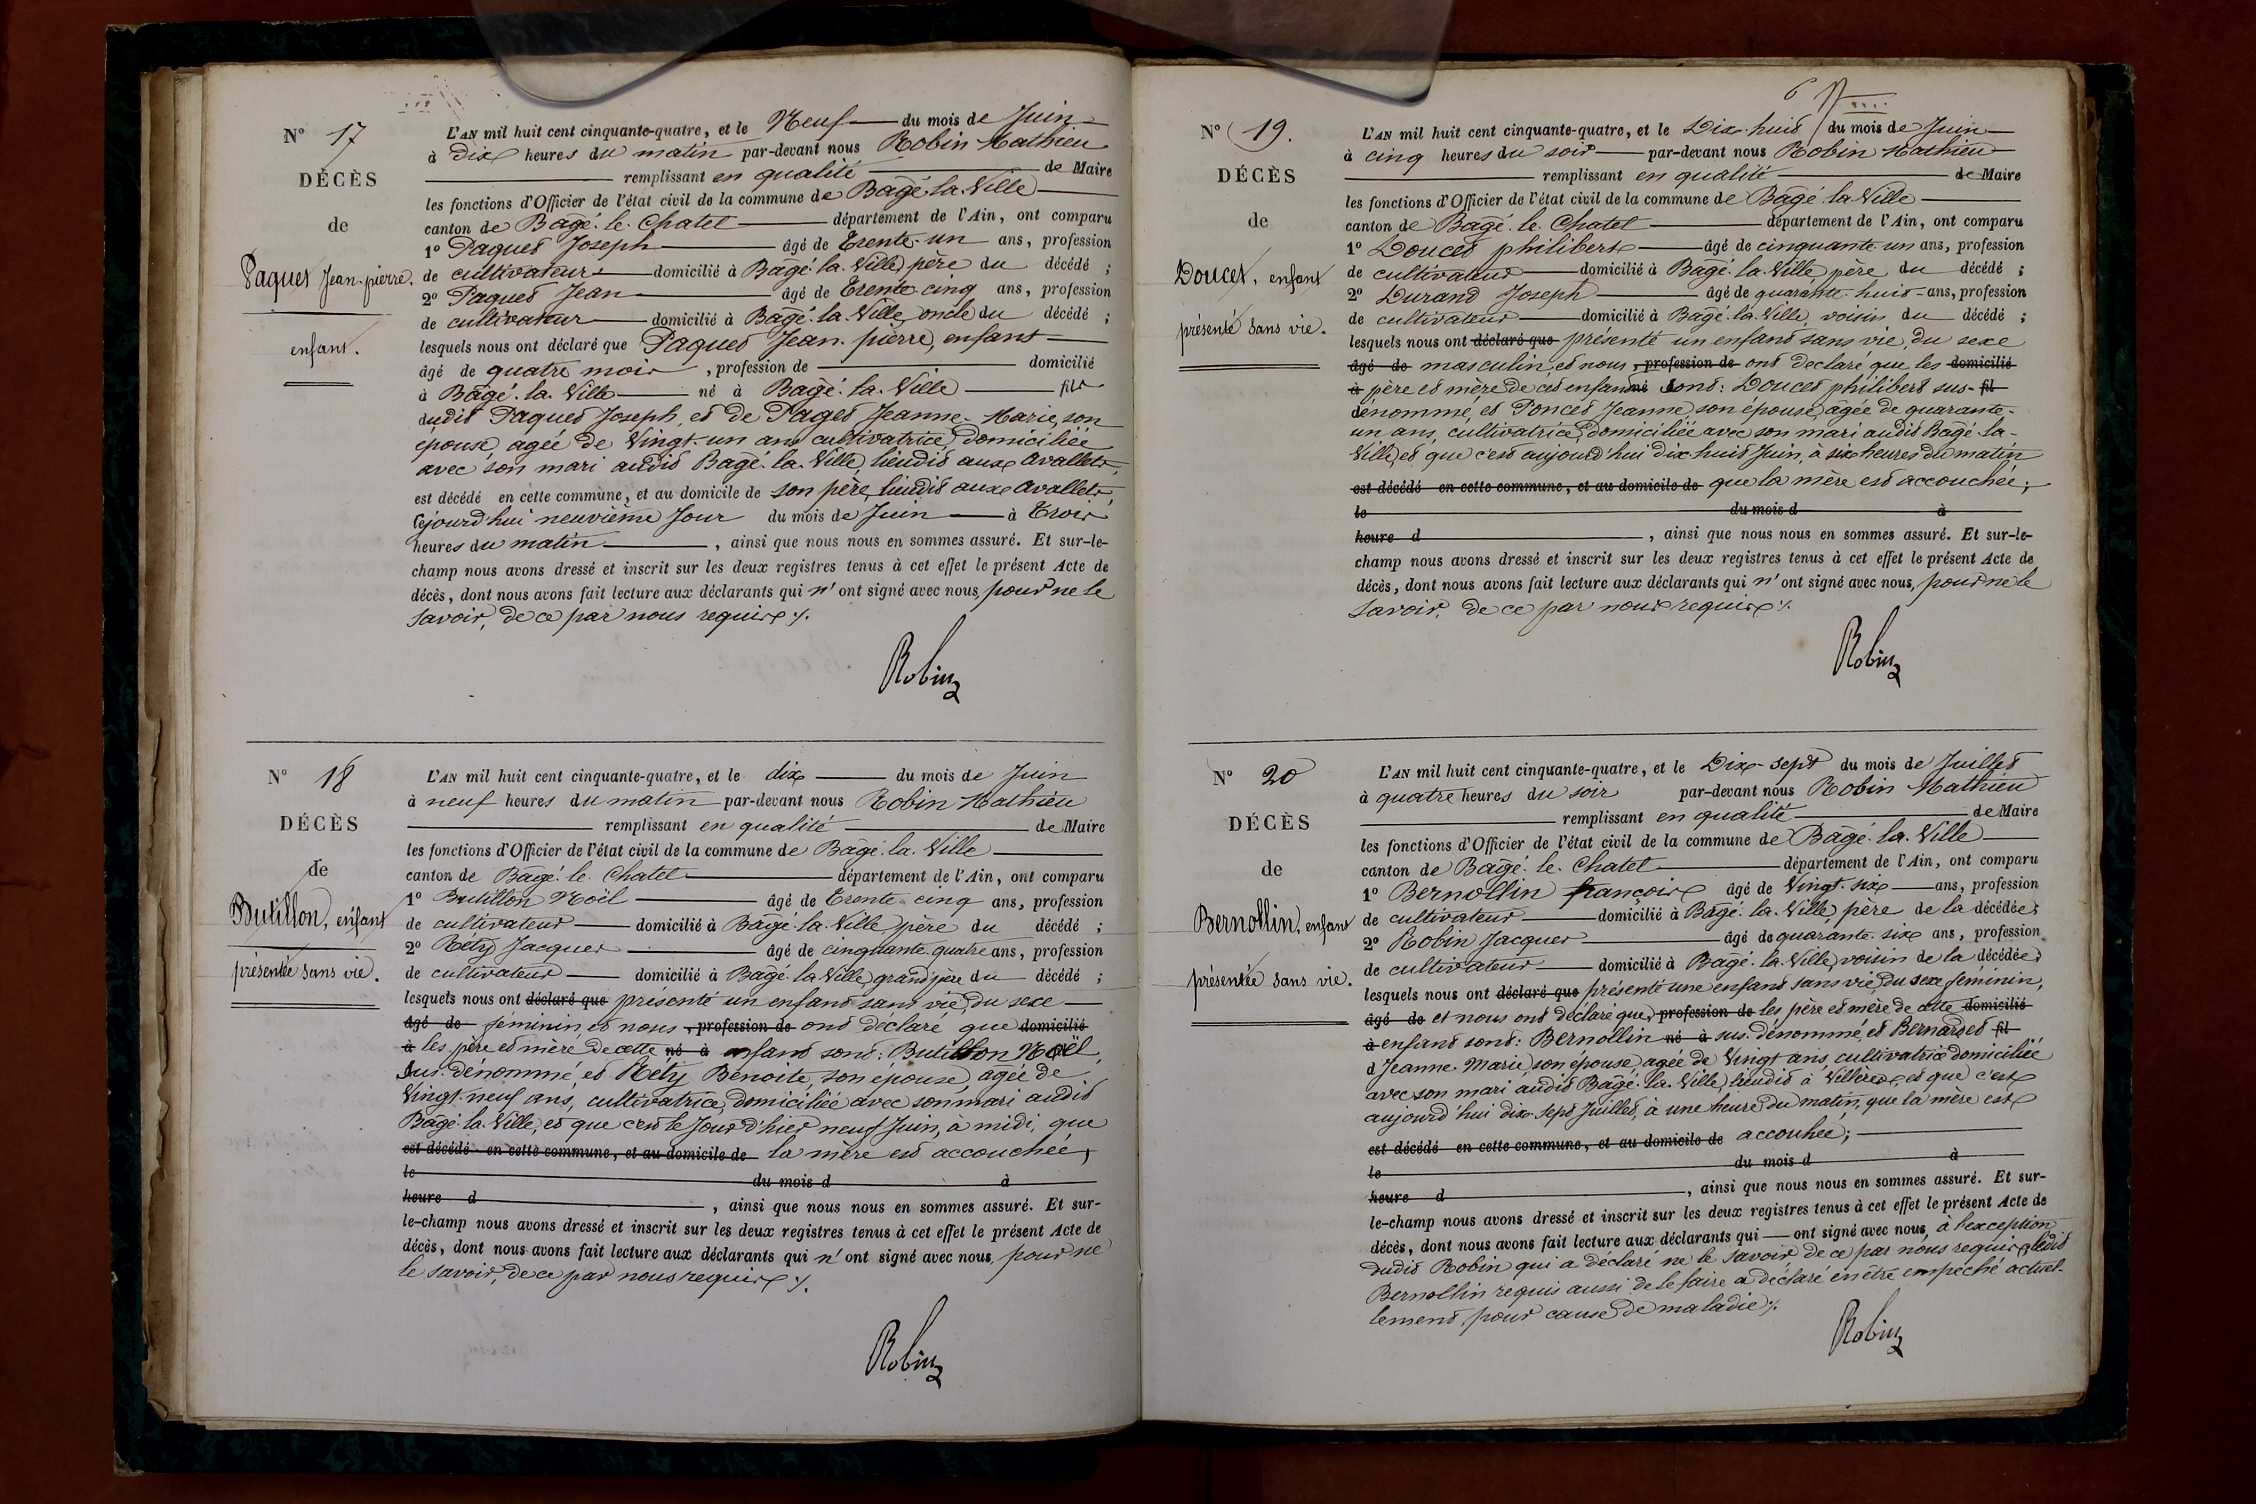 N° 17
DÉCÈS
de
Paquet Jean-pierre.
enfant.
L'AN mil huit cent cinquante-quatre, et le Neuf du mois de Juin
à Dix heures du matin par-devant nous Robin Mathieu
remplissant en qualité de Maire
les fonctions d'Officier de l'état civil de la commune de Bagé-la-Ville
canton de Bagé-le-Chatel département de l'Ain, ont comparu
1° Paquet Joseph âgé de Trente-un ans, profession
de cultivateur domicilié à Bagé-la-Ville, père du décédé ;
2° Paquet Jean âgé de Trente cinq ans, profession
de cultivateur domicilié à Bagé-la-Ville, oncle du décédé ;
lesquels nous ont déclaré que Paquet Jean-pierre, enfant
âgé de quatre mois , profession de domicilié
à Bagé-la-Ville né à Bagé-la-Ville fils
dudit Paquet Joseph, et de Paget Jeanne-Marie, son
épouse, agée de Vingt-un ans cultivatrice, domiciliée
avec son mari audit Bagé-la-Ville, lieudit aux Avallets,
est décédé en cette commune, et au domicile de son père, lieudit aux Avallets,
cejourd'hui neuvième Jour du mois de Juin à Trois
heures du matin , ainsi que nous nous en sommes assuré. Et sur-le-
champ nous avons dressé et inscrit sur les deux registres tenus à cet effet le présent Acte de
décès, dont nous avons fait lecture aux déclarants qui n'ont signé avec nous, pour ne le
savoir, de ce par nous requis ./.
Robin
N° 18
DÉCÈS
de
Butillon, enfant
présentée sans vie.
L'AN mil huit cent cinquante-quatre, et le dix du mois de Juin
à neuf heures du matin par-devant nous Robin Mathieu
remplissant en qualité de Maire
les fonctions d'Officier de l'état civil de la commune de Bagé-la-Ville
canton de Bagé-le-Chatel département de l'Ain, ont comparu
1° Butillon Noël âgé de Trente-cinq ans, profession
de cultivateur domicilié à Bagé-la-Ville, père du décédé ;
2° Réty Jacques âgé de cinquante-quatre ans, profession
de cultivateur domicilié à Bagé-la-Ville, grand père du décédé ;
lesquels nous ont déclaré que présenté un enfant sans vie, du sexe
âgé de féminin, et nous , profession de ont déclaré que domicilié
à les père et mère de cette né à enfant sont : Butillon Noël,
sus-dénommé, et Réty Benoite, son épouse, agée de
Vingt-neuf ans, cultivatrice, domiciliée avec son mari audit
Bagé-la-Ville, et que c'est le Jour d'hier neuf Juin, à midi, que
est décédé en cette commune, et au domicile de la mère est accouchée,
le du mois d à
heure d , ainsi que nous nous en sommes assuré. Et sur-
le-champ nous avons dressé et inscrit sur les deux registres tenus à cet effet le présent Acte de
décès, dont nous avons fait lecture aux déclarants qui n'ont signé avec nous, pour ne
le savoir, de ce par nous requis ./.
Robin
6
N° 19.
DÉCÈS
de
Doucet, enfant
présenté sans vie.
L'AN mil huit cent cinquante-quatre, et le Dix-huit du mois de Juin
à cinq heures du soir par-devant nous Robin Mathieu
remplissant en qualité de Maire
les fonctions d'Officier de l'état civil de la commune de Bagé-la-Ville
canton de Bagé-le-Chatel département de l'Ain, ont comparu
1° Doucet philibert âgé de cinquante-un ans, profession
de cultivateur domicilié à Bagé-la-Ville, père du décédé ;
2° Durand Joseph âgé de quarante-huit ans, profession
de cultivateur domicilié à Bagé-la-Ville, voisin du décédé ;
lesquels nous ont déclaré que présenté un enfant sans vie, du sexe
âgé de masculin, et nous , profession de ont déclaré que les domicilié
à père et mère de cet enfant né sont : Doucet philibert sus- fil
dénommé, et Poncet Jeanne, son épouse, agée de quarante-
un ans, cultivatrice, domiciliée avec son mari audit Bagé-la-
Ville, et que c'est aujourd'hui dix huit Juin, à six heures du matin
est décédé en cette commune, et au domicile de que la mère est accouchée ;
le du mois d à
heure d , ainsi que nous nous en sommes assuré. Et sur-le-
champ nous avons dressé et inscrit sur les deux registres tenus à cet effet le présent Acte de
décès, dont nous avons fait lecture aux déclarants qui n'ont signé avec nous, pour ne le
savoir, de ce par nous requis ./.
Robin
N° 20
DÉCÈS
de
Bernollin, enfant
présentée sans vie.
L'AN mil huit cent cinquante-quatre, et le Dix-sept du mois de Juillet
à quatre heures du soir par-devant nous Robin Mathieu
remplissant en qualité de Maire
les fonctions d'Officier de l'état civil de la commune de Bagé-la-Ville
canton de Bagé-le-Chatel département de l'Ain, ont comparu
1° Bernollin françois âgé de Vingt-six ans, profession
de cultivateur domicilié à Bagé-la-Ville, père de la décédée ;
2° Robin Jacques âgé de quarante-six ans, profession
de cultivateur domicilié à Bagé-la-Ville, voisin de la décédée ;
lesquels nous ont déclaré que présenté une enfant sans vie, du sexe féminin,
âgé de et nous ont déclaré que, profession de les père et mère de cette domicilié
à enfant sont : Bernollin né à sus-dénommé, et Bernardet fil
d Jeanne-Marie, son épouse, agée de Vingt ans, cultivatrice domiciliée
avec son mari audit Bagé-la-Ville, lieudit à Villèreux, et que c'est
aujourd'hui dix-sept Juillet, à une heure du matin, que la mère est
est décédé en cette commune, et au domicile de accouchée ;
le du mois d à
heure d , ainsi que nous nous en sommes assuré. Et sur-
le-champ nous avons dressé et inscrit sur les deux registres tenus à cet effet le présent Acte de
décès, dont nous avons fait lecture aux déclarants qui ont signé avec nous, à l'exception
dudit Robin qui a déclaré ne le savoir de ce par nous requis, ledit
Bernollin requis aussi de le faire a déclaré en être empêché actuel-
lement, pour cause de maladie ./.
Robin